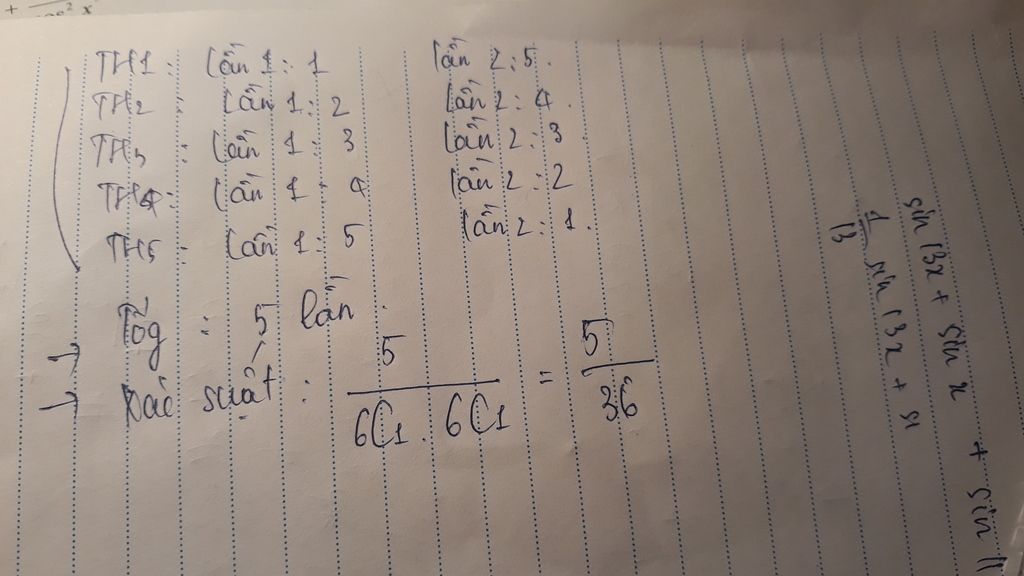 TH1: lần 1: 1 lần 2: 5.
TH2: lần 1: 2 lần 2: 4.
TH3: lần 1: 3 lần 2: 3
TH4: lần 1: 4 lần 2: 2
TH5: lần 1: 5 lần 2: 1.
→ Tổg: 5 lần.
→ Xác suất: 5 / 6C1 . 6C1 = 5 / 36
sin 13x + sin x + sin 11
1/13 sin 13x + si